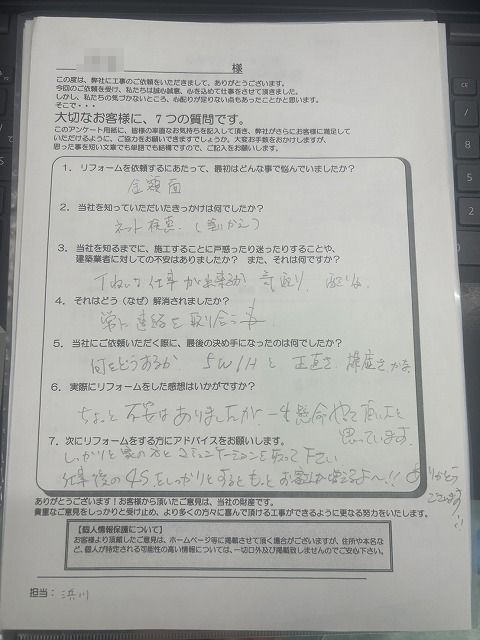 様
この度は、弊社に工事のご依頼をいただきまして、ありがとうございます。
今回のご依頼を受け、私たちは誠心誠意、心を込めて仕事をさせて頂きました。
しかし、私たちの気づかないところ、心配りが足りない点もあったことかと思います。
そこで・・・
大切なお客様に、7つの質問です。
このアンケート用紙に、皆様の率直なお気持ちを記入して頂き、弊社がさらにお客様に満足して
いただけるように、ご協力をお願いできますでしょうか。大変お手数をおかけしますが、
思った事を短い文章でも単語でも結構ですので、ご記入をお願いします。
1. リフォームを依頼するにあたって、最初はどんな事で悩んでいましたか？
金額面
2. 当社を知っていただいたきっかけは何でしたか？
ネット検索
3. 当社を知るまでに、施工することに戸惑ったり迷ったりすることや、
建築業者に対しての不安はありましたか？ また、それは何ですか？
丁ねいな仕事が出来るか
4. それはどう（なぜ）解消されましたか？
常に連絡を取り合う
5. 当社にご依頼いただく際に、最後の決め手になったのは何でしたか？
何をどうするか 5W1Hと正直さ
6. 実際にリフォームをした感想はいかがですか？
ちょっと不安はありましたが一生懸命やって頂いたと
思っています。
7. 次にリフォームをする方にアドバイスをお願いします。
しっかりと業者の方とコミュニケーションを取って下さい
仕事後の4Sをしっかりとするともっとお客は増えるよ〜!! ありがとう
ございます!!
ありがとうございます！お客様から頂いたご意見は、当社の財産です。
貴重なご意見をしっかりと受け止め、より多くの方々に喜んで頂ける工事ができるように更なる努力をいたします。
【個人情報保護について】
お客様より頂戴したご意見は、ホームページ等に掲載させて頂く場合がございますが、住所や本名な
ど、個人が特定される可能性の高い情報については、一切口外及び掲載致しませんのでご安心下さい。
担当：浜川